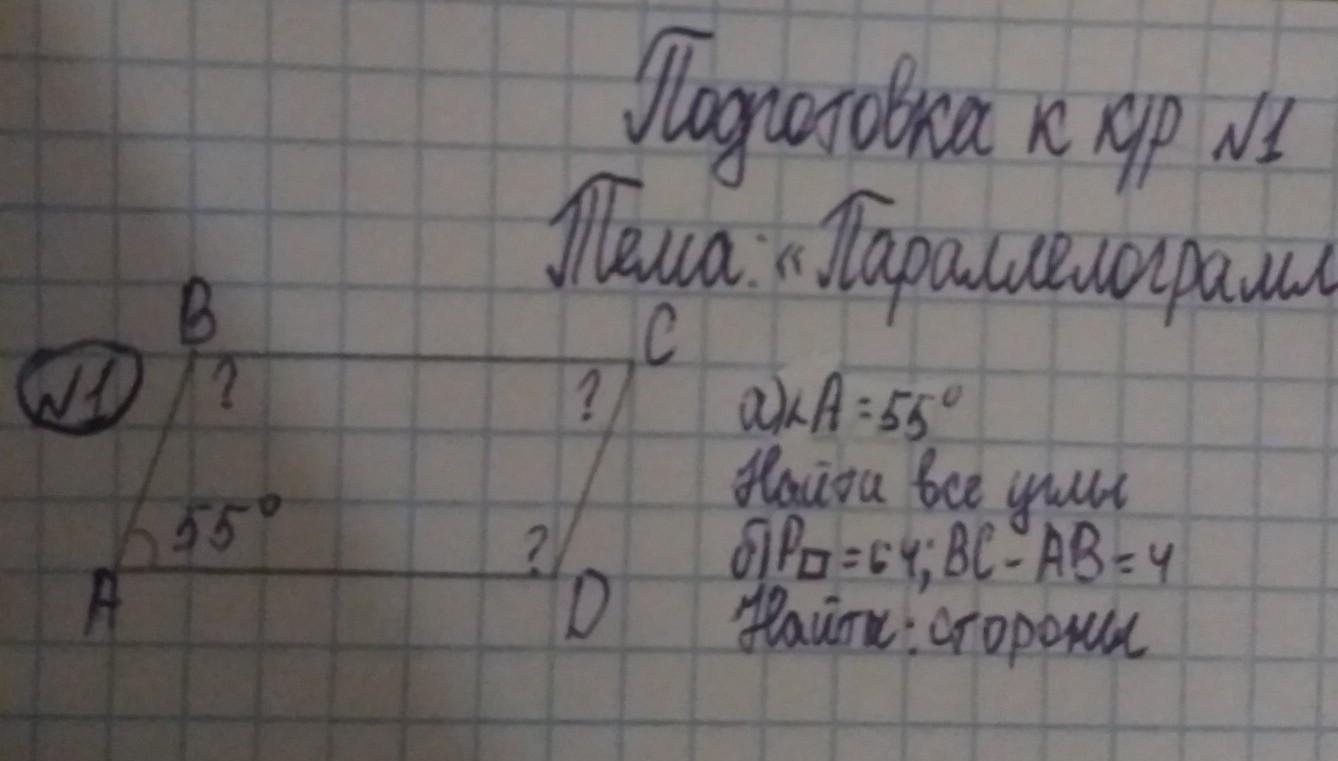 Подготовка к к/р №1
Тема: «Параллелограмм
B
C
№1
?
?
а) ∠A = 55°
Найти все углы
55°
?
б) P▱ = 64; BC - AB = 4
A
D
Найти: стороны